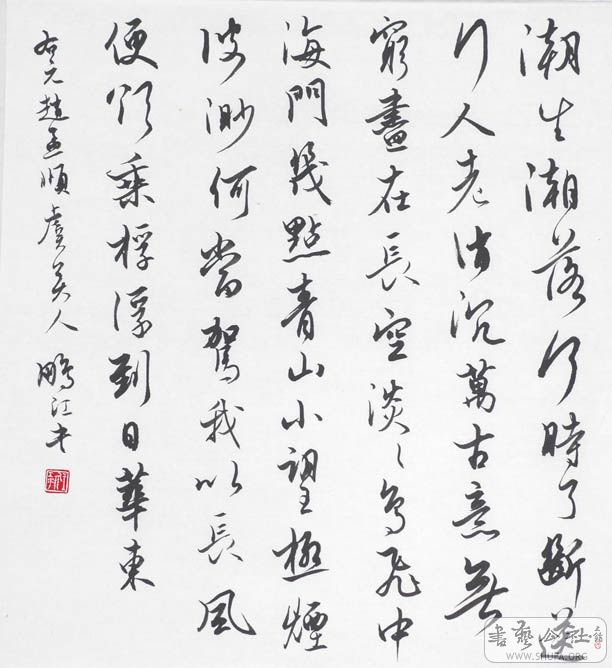 潮生潮落何時了斷送
行人老消沉萬古意無
窮盡在長空淡〻鳥飛中
海門幾點青山小望極煙
波渺何當駕我以長風
便欲乘桴浮到日華東
右元趙孟頫虞美人 鵬江书
書藝公社
WWW.SHUFA.ORG